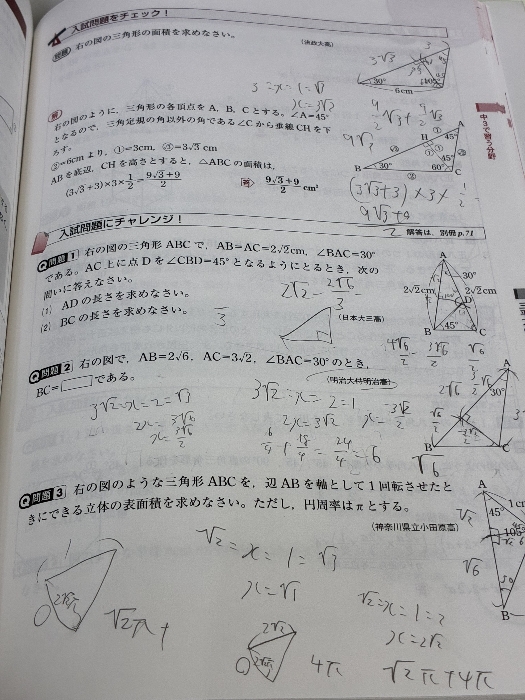 入試問題をチェック！
問題 右の図の三角形の面積を求めなさい。
(法政大高)
30°
6cm
3√3
3
3:x=1:√
x=3√3
9√3
右の図のように，三角形の各頂点をA，B，Cとする。∠A=45°
となるので，三角定規の角以外の角である∠Cから垂線CHを下
ろす。
②=6cmより，①=3cm，√3=3√3cm
ABを底辺，CHを高さとすると，△ABCの面積は，
(3√3+3)×3×1/2=(9√3+9)/2
答 (9√3+9)/2 cm²
A
45°
H
45°
B
30°
60°
C
(3√3+3)×3×1/2=
9√3+9
2
中3で習う分野
入試問題にチャレンジ！
解答は，別冊p.71
Q問題1 右の図の三角形ABCで，AB=AC=2√2cm，∠BAC=30°
である。AC上に点Dを∠CBD=45°となるようにとるとき，次の
問いに答えなさい。
(1) ADの長さを求めなさい。
(2) BCの長さを求めなさい。
(日本大三高)
2√2-2√6/3
3
A
30°
2√2cm
2√2cm
D
B
45°
C
Q問題2 右の図で，AB=2√6，AC=3√2，∠BAC=30°のとき，
BC=□である。
(明治大付明治高)
3√2:x=2:√3
2x=3√6
x=3√6/2
3√2:x=2:1
2x=3√2
x=3√2/2
6/4+18/4=24/4=6
4√6/2-3√6/2
√6/2
2√6
30°
A
B
√6
Q問題3 右の図のような三角形ABCを，辺ABを軸として1回転させたと
きにできる立体の表面積を求めなさい。ただし，円周率はπとする。
(神奈川県立小田原高)
A
1cm
45°
√2
√6
B
√2:x=1:√3
x=√
√2:x=1:2
x=2√2
√2π+
2√2
4π
√2π+4π